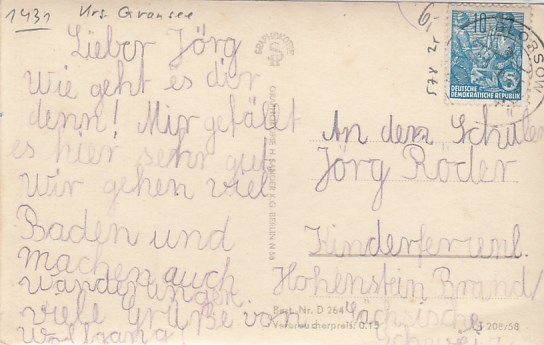 1431 Krs. Gransee
Lieber Jörg
Wie geht es dir
denn! Mir gefällt
es hier sehr gut
Wir gehen viel
Baden und
machen auch
wanderungen.
viele Grüße von
Wolfgang
10
5
DEUTSCHE
DEMOKRATISCHE REPUBLIK
An den Schüler
Jörg Röder
Kinderferienl.
Hohenstein Brand/
Sächsische
Schweiz
Best.-Nr. D 264
Verbraucherpreis: 0.15
208/58